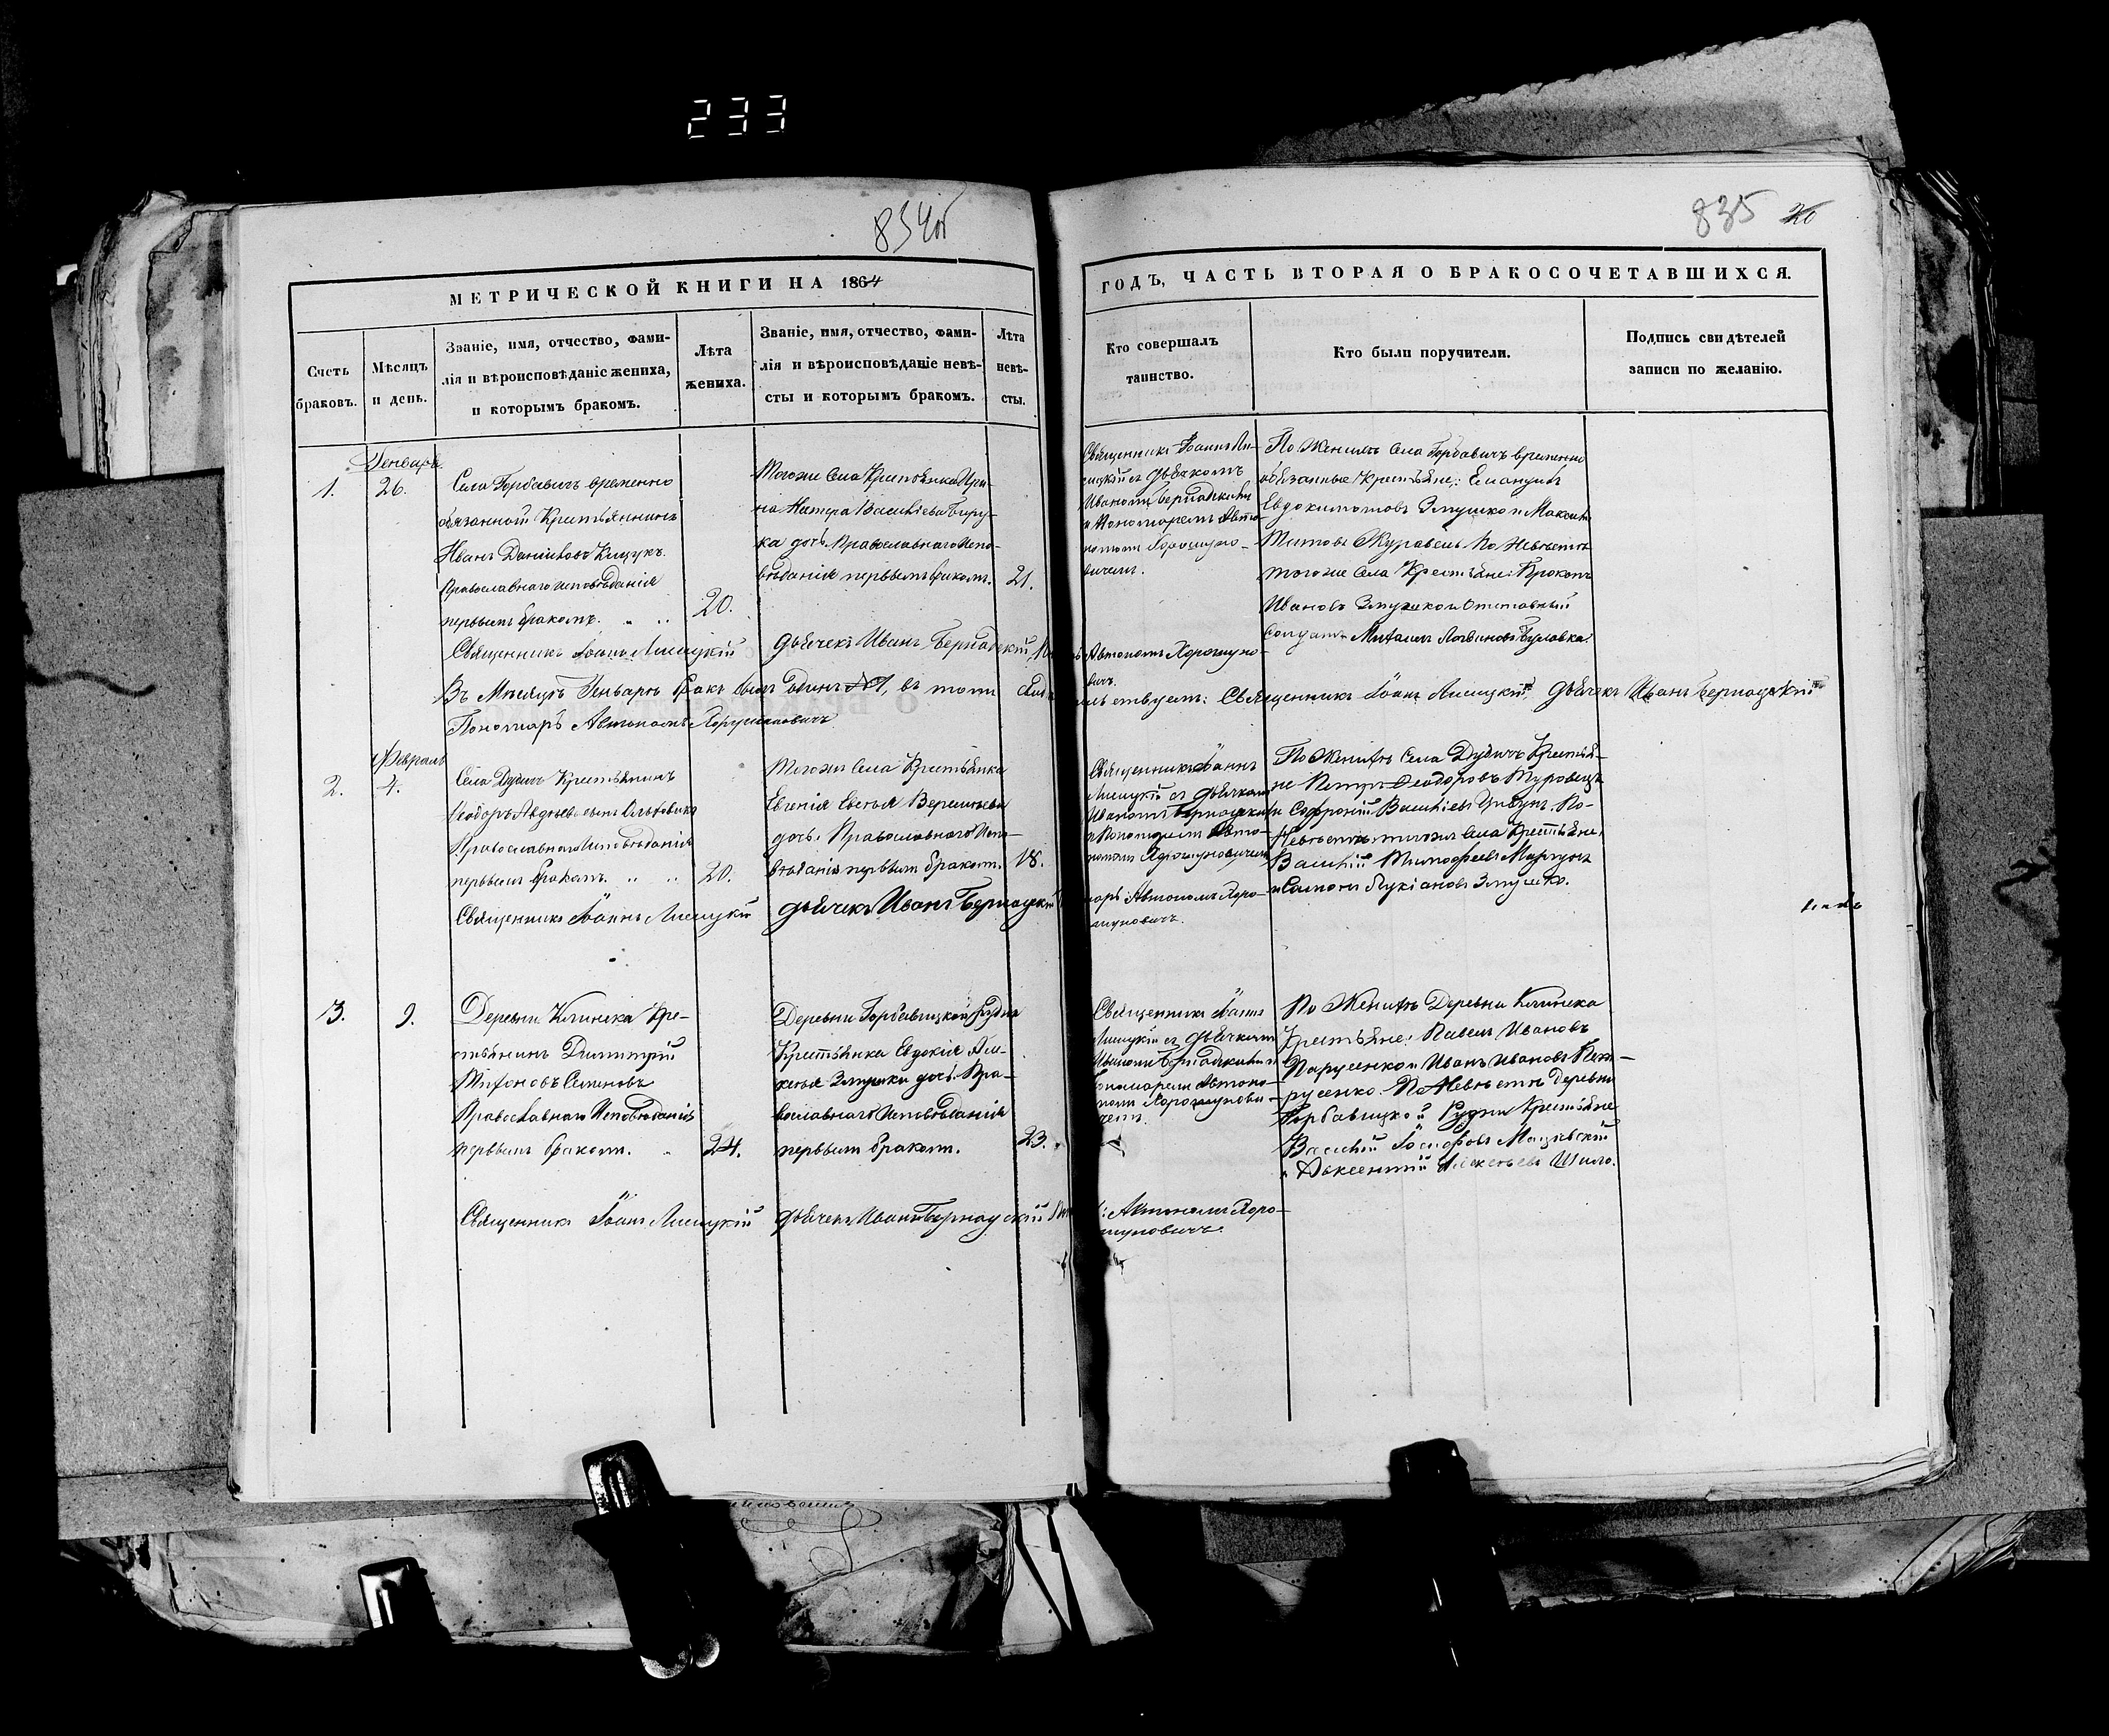 233
834об
835 26
МЕТРИЧЕСКОЙ КНИГИ НА 1864
ГОДЪ, ЧАСТЬ ВТОРАЯ О БРАКОСОЧЕТАВШИХСЯ.
Счетъ
браковъ.
Мѣсяцъ
и день.
Званіе, имя, отчество, фами-
лія и вѣроисповѣданіе жениха,
и которымъ бракомъ.
Лѣта
жениха.
Званіе, имя, отчество, фами-
лія и вѣроисповѣданіе невѣ-
сты и которымъ бракомъ.
Лѣта
невѣ-
сты.
Кто совершалъ
таинство.
Кто были поручители.
Подпись свидѣтелей
записи по желанію.
1.
Генваря
26.
Села Горбавичъ временно
обязанной Крестьянинъ
Иванъ Даниловъ
Православнаго исповѣданія
первымъ бракомъ.
20.
Тогоже Села Крестьянка Ири-
на
ка дочь Православнаго Испо-
вѣданія первымъ бракомъ.
21.
Священникъ Іоаннъ Ли-
сицкій съ дьячкомъ
Иваномъ Бернадскимъ
и Пономаремъ Авто-
номомъ Хорошуно-
вичемъ.
По Женихѣ Села Горбавичъ временно
обязанные Крестьяне:
Евдокимовъ Змушко и Максимъ
Титовъ Журавель По Невѣстѣ
тогоже Села Крестьяне: Прокопъ
Ивановъ Змушко и Отставный
Солдатъ
Священникъ Іоаннъ Лисицкій
дьячекъ Иванъ Бернадскій
Автономъ Хорошуно-
вичъ.
Въ Мѣсяцѣ Генварѣ бракъ былъ одинъ №1, въ томъ
Священникъ Іоаннъ Лисицкій, дьячекъ Иванъ Бернадскій
Пономарь Автономъ Хорошунович
2.
Февраль
4.
Села Дудичъ Крестьянинъ
Православнаго Исповѣданія
первымъ бракомъ.
20.
Тогоже Села Крестьянка
Евгенія
дочь. Православнаго Испо-
вѣданія первымъ бракомъ.
18.
Священникъ Іоаннъ
Лисицкій съ дьячкомъ
Иваномъ Бернадскимъ
и Пономаремъ Авто-
номомъ Хорошуновичемъ
По Женихѣ Села Дудичъ Крестья-
не Петръ Ѳеодоровъ Туровецъ
и Софроній Васильевъ По-
Невѣстѣ тогоже Села Крестьяне,
Василій Тимофеевъ
и Самсонъ Лукіановъ Змушко.
Священникъ Іоаннъ Лисицкій
дьячекъ Иванъ Бернадскій
Автономъ Хоро-
шуновичъ.
3.
9.
Деревни Клинска Кре-
стьянинъ Димитрій
Семеновъ
Православнаго Исповѣданія
первымъ бракомъ.
24.
Деревни Горбавицкой Рудни
Крестьянка Евдокія Але-
ксѣя Змушки дочь Пра-
вославнаго Исповѣданія
первымъ бракомъ.
23.
Священникъ Іоаннъ
Лисицкій съ дьячкомъ
Иваномъ Бернадскимъ и
Пономаремъ Автоно-
момъ Хорошунови-
чемъ.
По Женихѣ Деревни Клинска
Крестьяне: Павелъ Ивановъ
и Иванъ Ивановъ Пет-
русенко. По Невѣстѣ Деревни
Горбавицкой Рудни Крестьяне
Василій Іосифовъ
и Авксентій Алексѣевъ Шило.
Священникъ Іоаннъ Лисицкій
дьячекъ Иванъ Бернадскій
Автономъ Хоро-
шуновичъ.